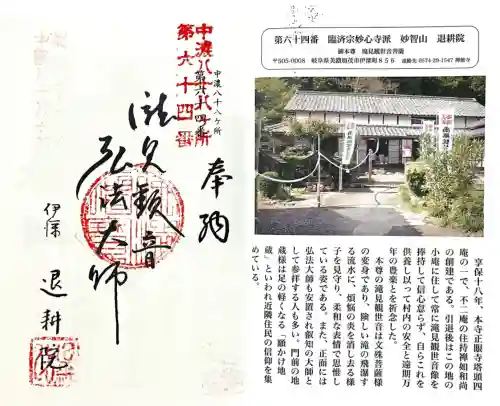 中濃八十八ケ所
第六十四番
中濃八十八ケ所
第六十四番
奉納
滝見観音
弘法大師
伊深
退耕院
第六十四番 臨済宗妙心寺派 妙智山 退耕院
御本尊 滝見観世音菩薩
〒505-0008 岐阜県美濃加茂市伊深町856 連絡先0574-29-1547 禅徳寺
享保十八年、本寺正眼寺塔頭四
庵の一で、不二庵の住持禅如和尚
の創建である。引退後はこの地の
小庵に住して常に滝見観世音像を
捧持して信心怠らず、自らこれを
供養し以って村内の安全と遠期万
年の豊楽とを祈念した。
本尊の滝見観世音は文殊菩薩様
の変身であり、険しい滝の飛瀑す
る流水に、煩悩の炎を消し去る様
子を見守り、柔和な表情で思惟し
ている姿である。また、正面には
弘法大師も安置され叡知の大師と
して参拝する人も多い。門前の地
蔵様は足の軽くなる「願かけ地
蔵」といわれ近隣住民の信仰を集
めている。